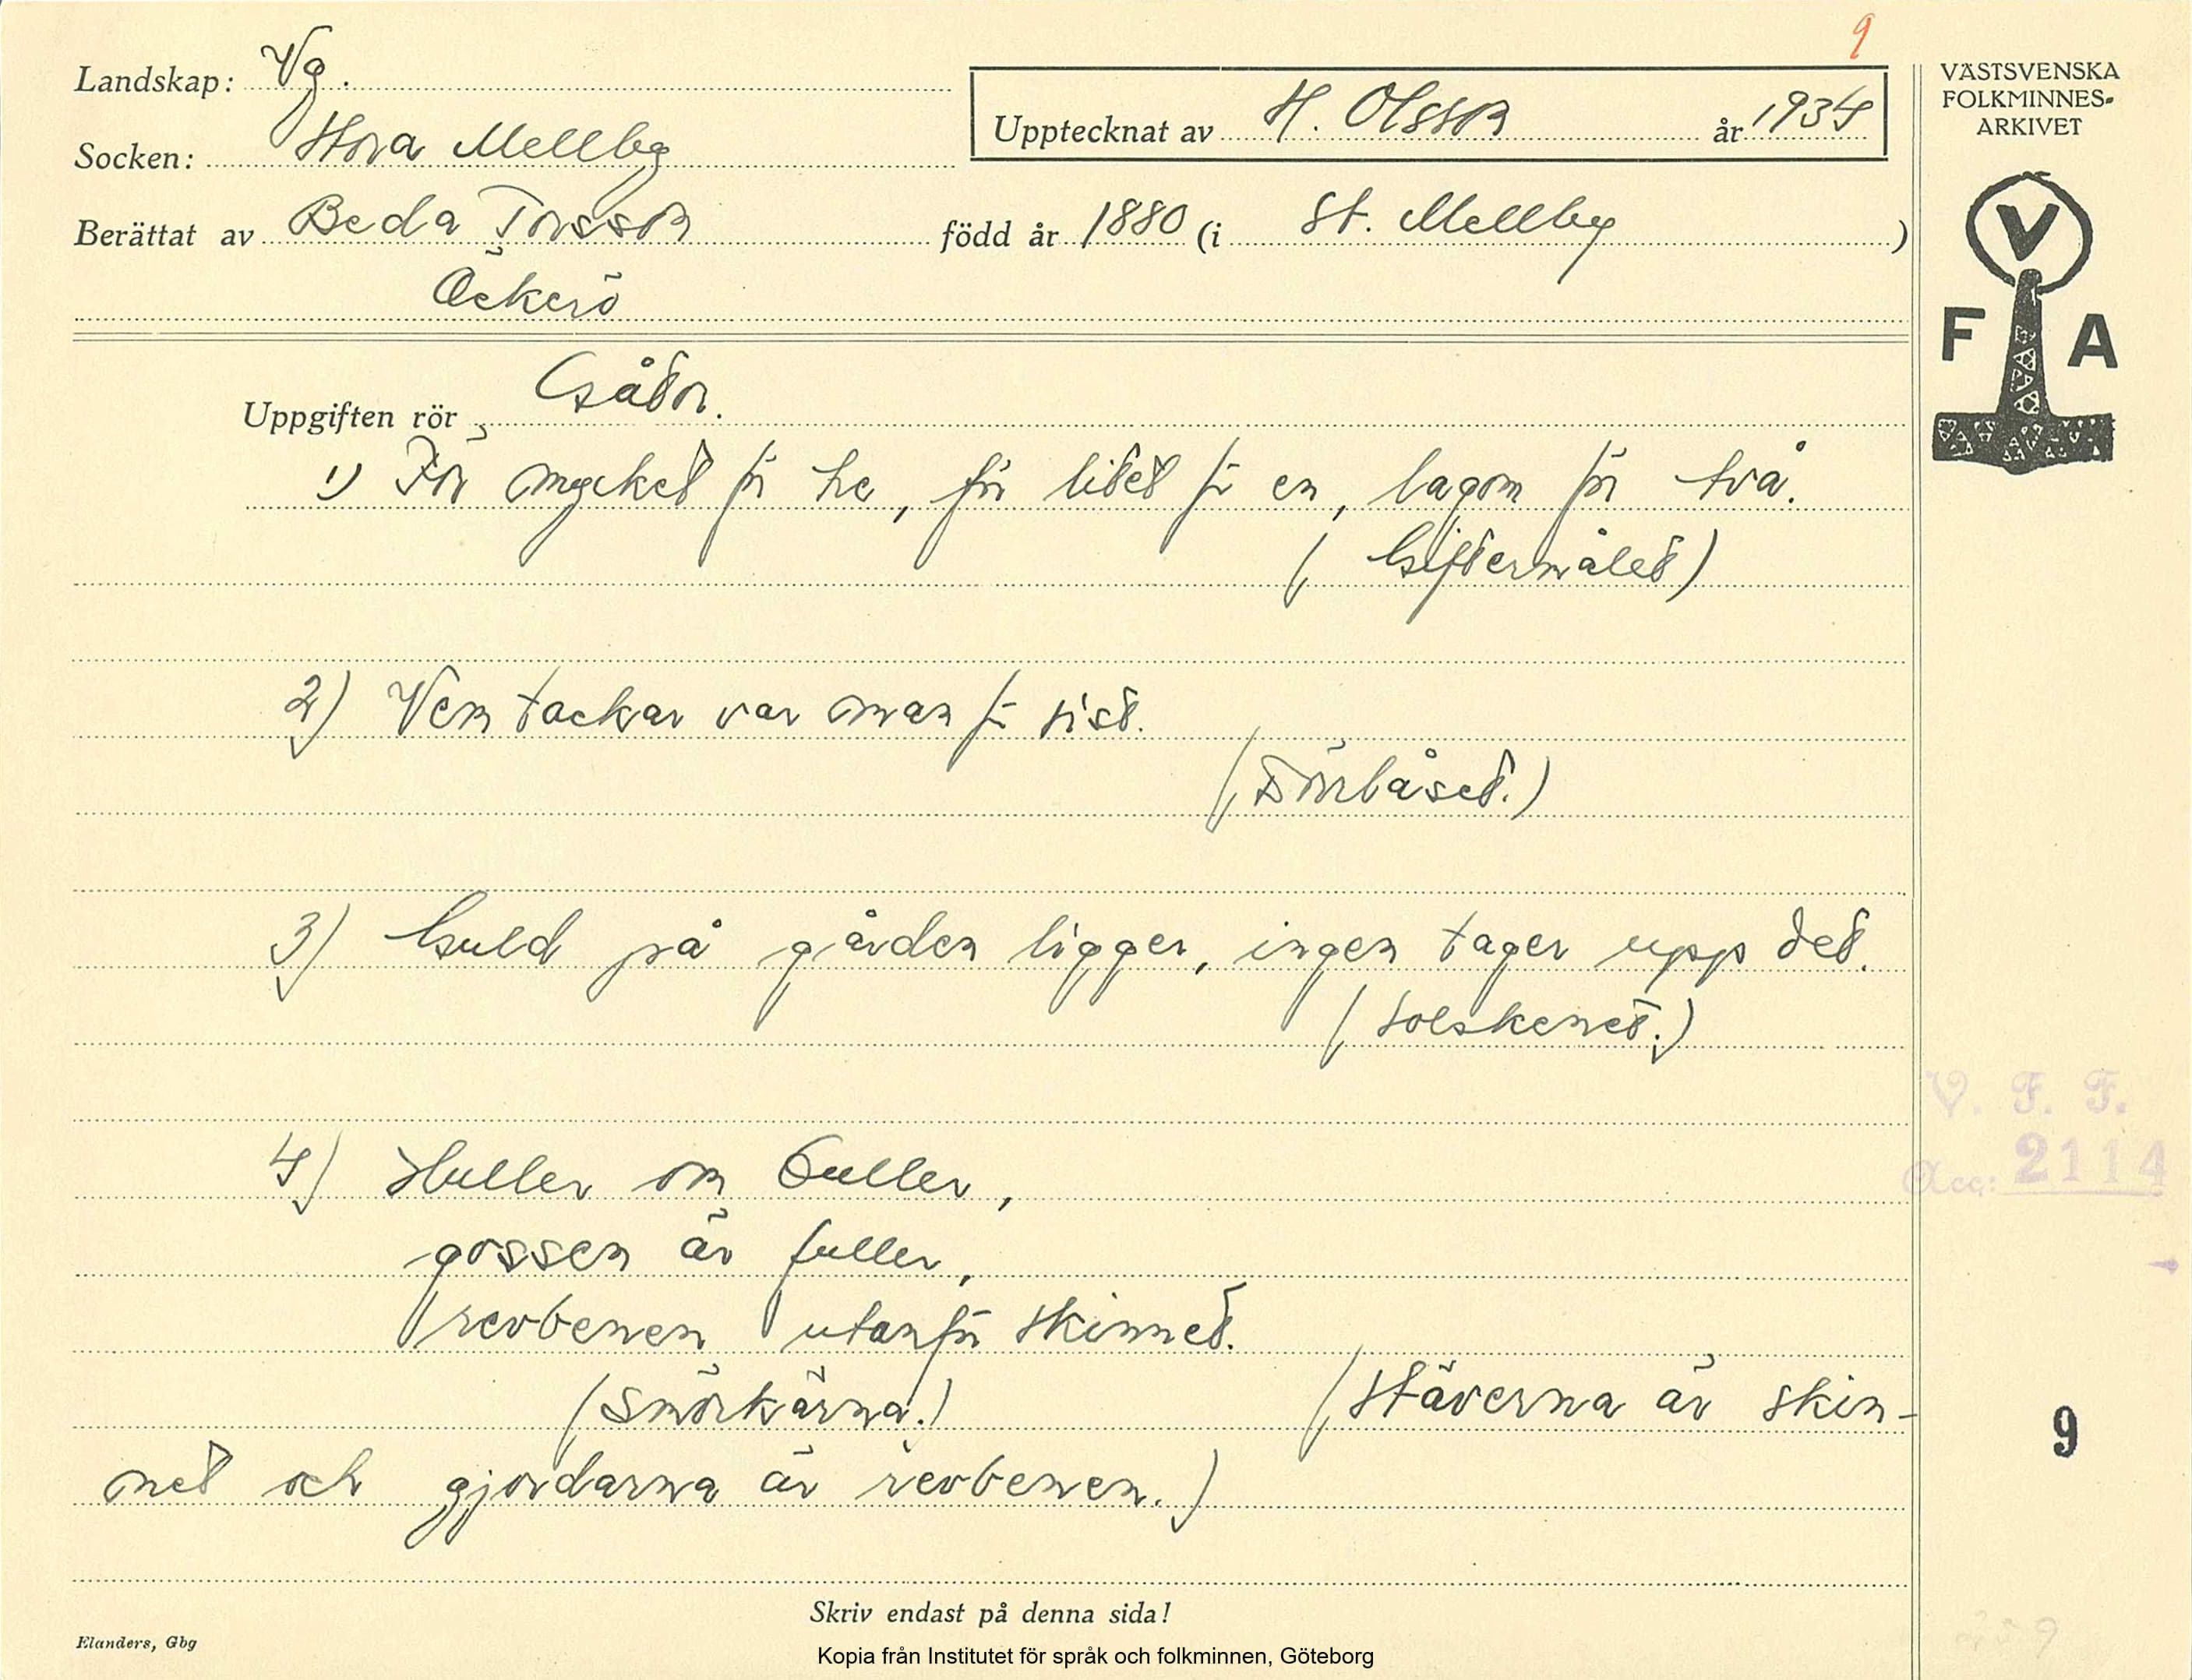 9
Landskap: Vg.
Upptecknat av H. Olsson år 1934
Socken: Stora Mellby
Berättat av Beda Torsson född år 1880 (i St. Mellby)
Öckerö
VÄSTSVENSKA
FOLKMINNES-
ARKIVET
V
F A
Uppgiften rör Gåtor.
1) För mycket för tre, för litet för en, lagom för två.
(Giftermålet)
2) Vem tackar var man för sist.
(Dörrlåset.)
3) Guld på gården ligger, ingen tager upp det.
(Solskenet.)
V. F. F.
Acc: 2114
4) Huller om buller,
gossen är fuller,
revbenen utanför skinnet.
(Smörkärna.) (Stäverna är skin-
net och gjordarna är revbenen.)
9
Skriv endast på denna sida!
Elanders, Gbg
Kopia från Institutet för språk och folkminnen, Göteborg